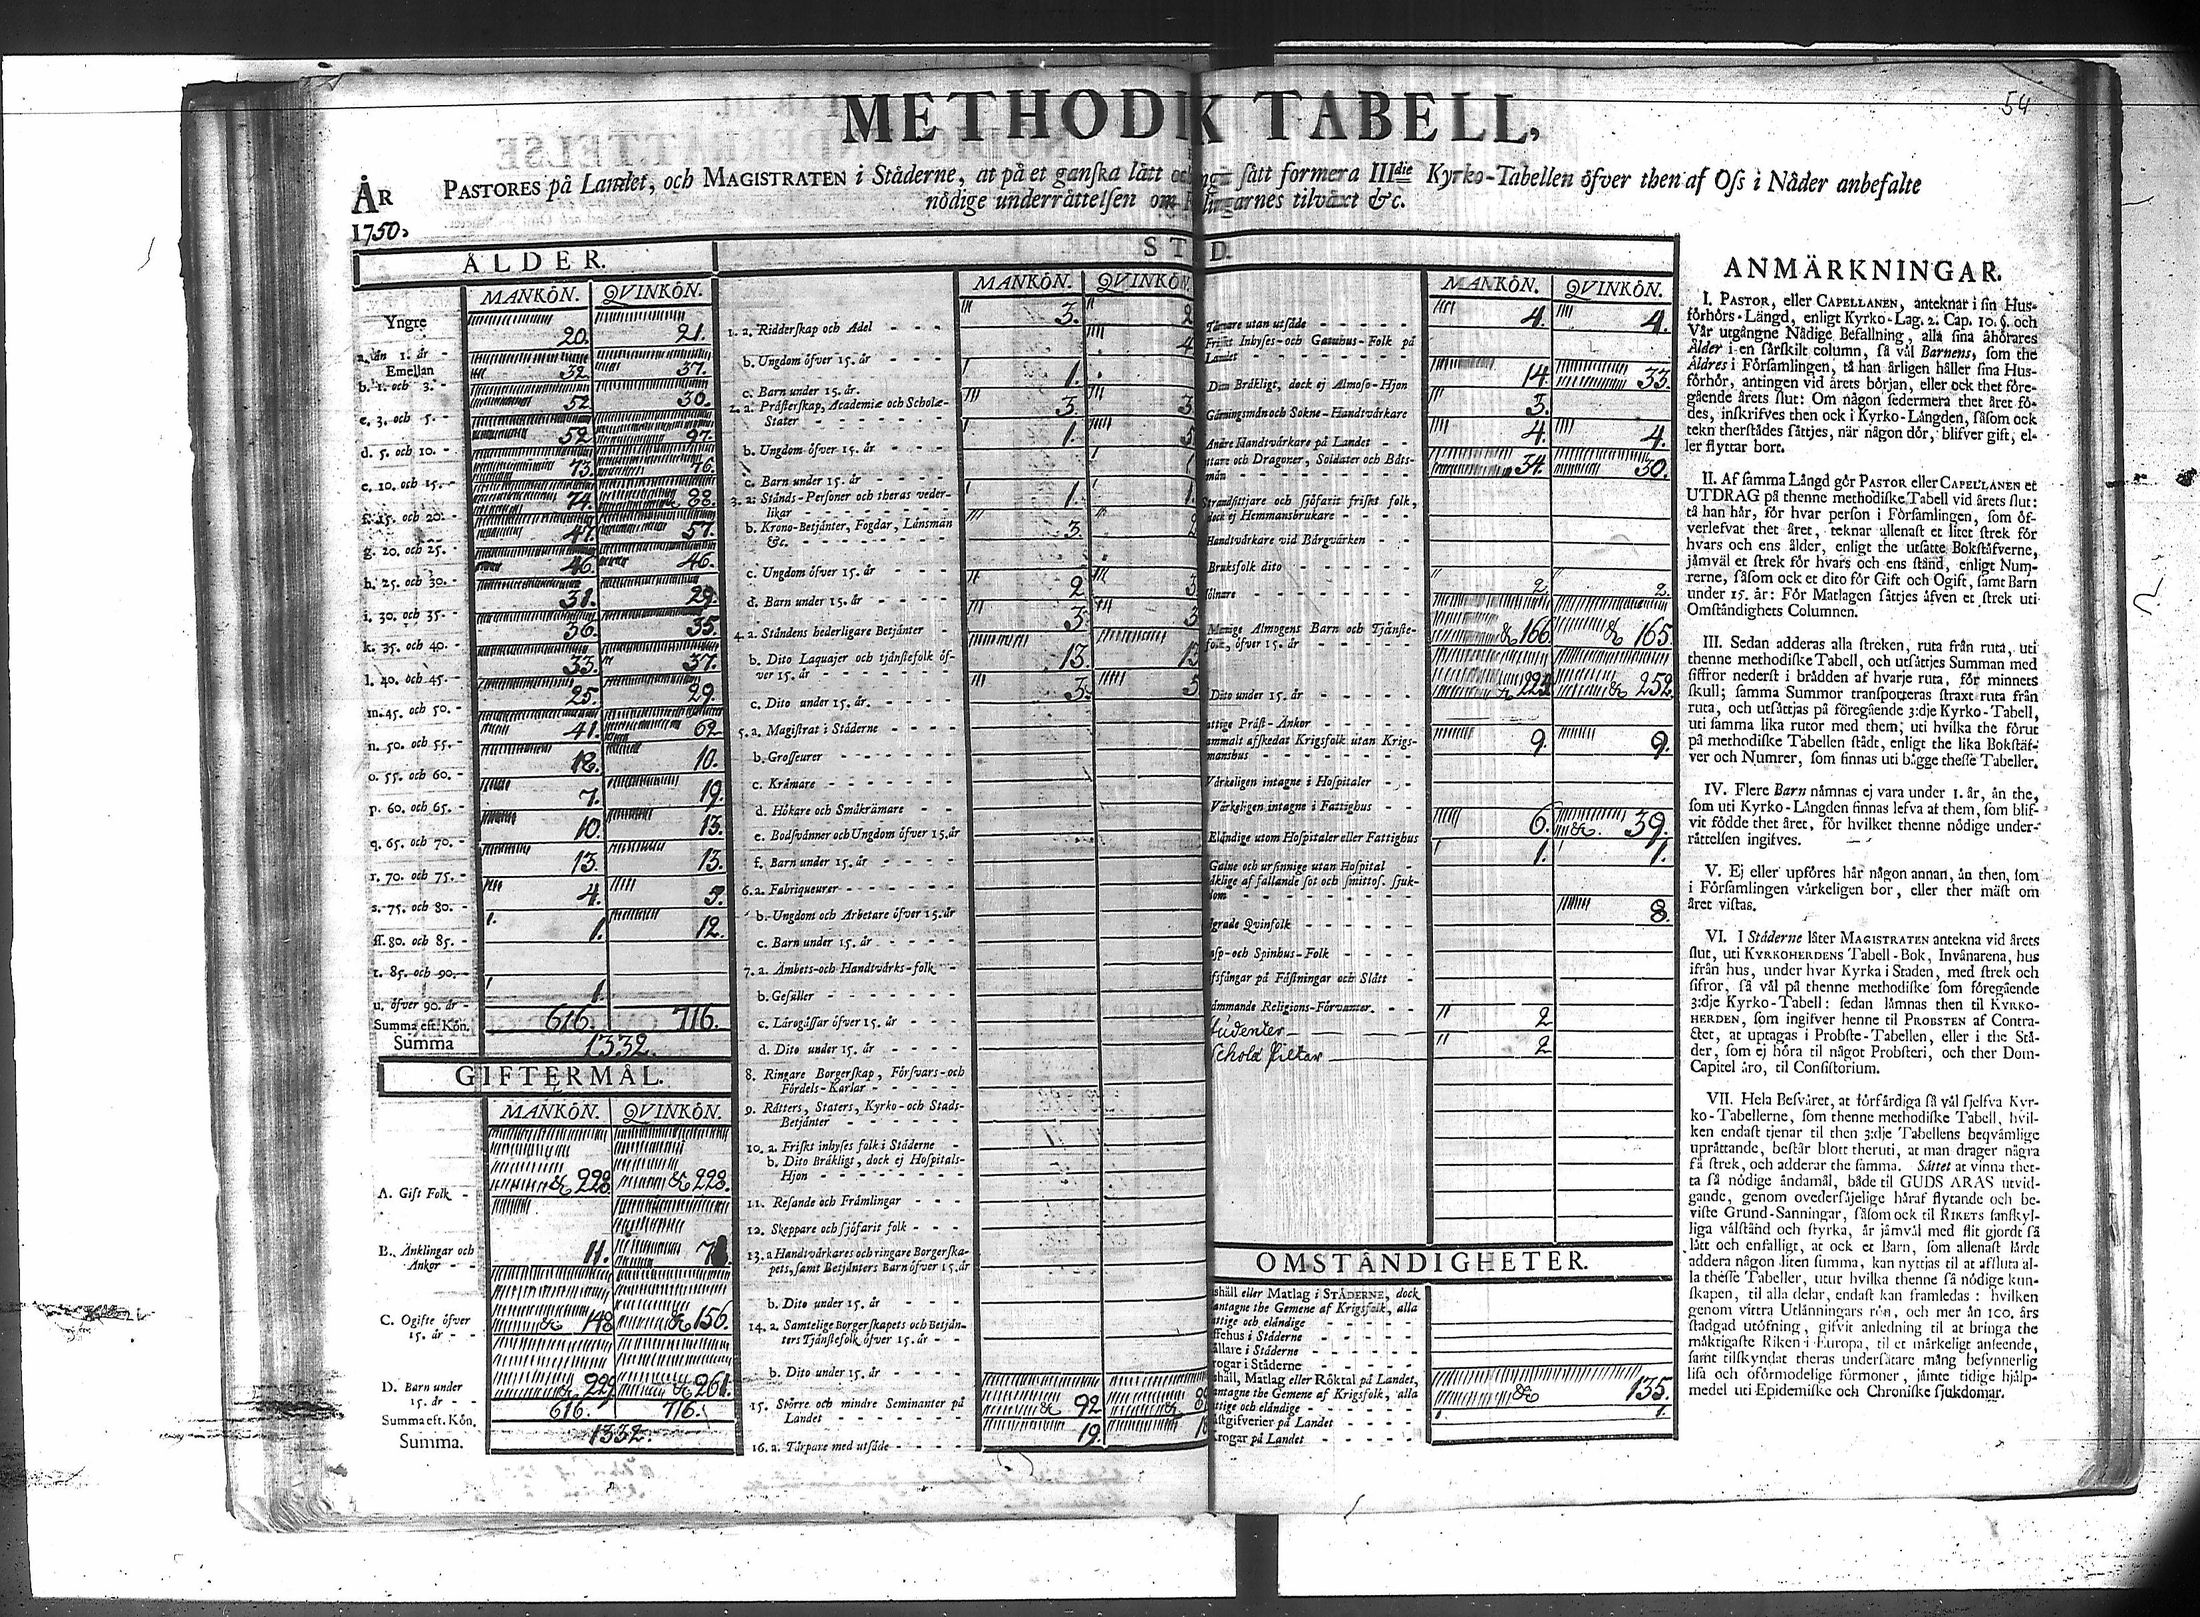 METHODIK TABELL,
54
ÅR
1750.
PASTORES på Landet, och MAGISTRATEN i Ståderne, at på et ganska lått och sått formera IIIdie Kyrko-Tabellen öfver then af Oss i Nåder anbefalte
nödige underråttelsen om tilvåxt &c.
ÅLDER.
MANKÖN. QVINKÖN.
Yngre
a. ån 1. år - 20. 21.
Emellan
b. 1. och 3. - 32. 37.
c. 3. och 5. - 52 30.
d. 5. och 10. - 52. 97.
e. 10. och 15. - 73. 76.
f. 15. och 20. - 74. 88.
g. 20. och 25. - 47. 57.
h. 25. och 30. - 46. 46.
i. 30. och 35. - 31. 29.
k. 35. och 40. - 36. 35.
l. 40. och 45. - 33. 37.
m. 45. och 50. - 25. 29.
n. 50. och 55. - 41. 62
o. 55. och 60. - 12. 10.
p. 60. och 65. - 7. 19.
q. 65. och 70. - 10. 13.
r. 70. och 75. - 13. 13.
s. 75. och 80. - 4. 5.
ff. 80. och 85. - 1. 12.
t. 85. och 90. -
u. öfver 90. år - 1.
Summa eft. Kön. 616. 716.
Summa 1332.
GIFTERMÅL.
MANKÖN. QVINKÖN.
A. Gift Folk - & 228 & 228.
B. Änklingar och
Ånkor - - 11.
C. Ogifte öfver
15. år - - & 148 & 156.
D. Barn under
15. år - - & 229 & 261.
Summa eft. Kön. 616. 716.
Summa. 1332.
STÅND.
MANKÖN. QVINKÖN.
1. a. Ridderskap och Adel - - - - 3.
b. Ungdom öfver 15. år - - - - 4
c. Barn under 15. år. 1.
2. a. Pråsterskap, Academiæ och Scholæ-
Stater - - - - - - 3 3
b. Ungdom öfver 15. år - - - - 1. 5
c. Barn under 15. år - - - -
3. a. Stånds-Personer och theras veder-
likar - - - - - - 1. 1.
b. Krono-Betjänter, Fogdar, Lånsmån
&c. - - - - - - 3.
c. Ungdom öfver 15. år - - - -
d. Barn under 15. år - - - - 2 3
4. a. Ståndens hederligare Betjänter - 3. 3
b. Dito Laquajer och tjånstefolk öf-
ver 15. år - - - - - - 13. 13
c. Dito under 15. år. - - - - 3. 5
5. a. Magistrat i Ståderne - - - -
b. Grosseurer - - - - - -
c. Kråmare - - - - - -
d. Hökare och Småkråmare - -
e. Bodsvånner och Ungdom öfver 15. år
f. Barn under 15. år - - - -
6. a. Fabriqueurer - - - - - -
b. Ungdom och Arbetare öfver 15. år
c. Barn under 15. år - - - -
7. a. Åmbets-och Handtvårks-folk -
b. Gesåller - - - - - -
c. Lårogåssar öfver 15. år - - -
d. Dito under 15. år - - - -
8. Ringare Borgerskap, Försvars-och
Fördels-Karlar - - - - -
9. Råtters, Staters, Kyrko-och Stads-
Betjänter - - - - - -
10. a. Friskt inhyses folk i Ståderne -
b. Dito Bråkligt, dock ej Hospitals-
Hjon - - - - - - -
11. Resande och Fråmlingar - - -
12. Skeppare och sjöfarit folk - - -
13. a Handtvårkares och ringare Borgerska-
pets, samt Betjånters Barn öfver 15. år
b. Dito under 15. år - - - -
14. a. Samtelige Borgerskapets och Betjån-
ters Tjånstefolk öfver 15. år - -
b. Dito under 15. år - - - -
15. Större och mindre Seminanter på
Landet - - - - - - & 92 &
16. a. Torpare med utsåde - - - - 19.
MANKÖN. QVINKÖN.
utan utsåde - - - - - 4. 4.
Friskt Inhyses-och Gatuhus-Folk på
Landet - - - - - - 14. 33.
Dito Bråkligt, dock ej Almoso-Hjon 3.
Gårningsmån och Sokne-Handtvårkare 4. 4.
Andre Handtvårkare på Landet - -
och Dragoner, Soldater och Båts-
mån - - - - - - 34. 30.
Strandsittjare och sjöfarit friskt folk,
dock ej Hemmansbrukare - - -
Handtvårkare vid Bårgvårken - -
Bruksfolk dito - - - - - -
2. 2.
Menige Almogens Barn och Tjånste-
folk, öfver 15. år - - - - & 166. & 165.
Dito under 15. år - - - - - & 224. & 252.
Pråst-Ånkor - - - - -
afskedat Krigsfolk utan Krigs-
manshus - - - - - - 9. 9.
Vårkeligen intagne i Hospitaler - -
Vårkeligen intagne i Fattighus - -
Elåndige utom Hospitaler eller Fattighus 6. & 39.
Galne och ursinnige utan Hospital - 1. 1.
af fallande sot och smittos. sjuk-
dom - - - - - - -
Qvinfolk - - - - - 8.
och Spinhus-Folk - - - -
på Fåstningar och Slått -
Religions-Förvanter. - - 2
Studenter 2
Schold Piltar
OMSTÅNDIGHETER.
eller Matlag i STÅDERNE, dock
the Gemene af Krigsfolk, alla
och elåndige - - - - -
i Ståderne - - - - -
i Ståderne - - - - -
i Ståderne - - - - -
Matlag eller Röktal på Landet,
the Gemene af Krigsfolk, alla
och elåndige - - - - - & 135.
på Landet - - - - 1. 1.
på Landet - - - - -
ANMÄRKNINGAR.
I. PASTOR, eller CAPELLANEN, anteknar i sin Hus-
förhörs-Långd, enligt Kyrko-Lag. 2. Cap. 10. §. och
Vår utgångne Nådige Befallning, alla sina åhörares
Ålder i en sårskilt column, så vål Barnens, som the
Åldres i Församlingen, tå han årligen håller sina Hus-
förhör, antingen vid årets början, eller ock thet före-
gående årets slut: Om någon sedermera thet året fö-
des, inskrifves then ock i Kyrko-Långden, såsom ock
tekn therstådes såttjes, når någon dör, blifver gift, el-
ler flyttar bort.
II. Af samma Långd gör PASTOR eller CAPELLANEN et
UTDRAG på thenne methodiske Tabell vid årets slut:
tå han hår, för hvar person i Församlingen, som öf-
verlefvat thet året, teknar allenast et litet strek för
hvars och ens ålder, enligt the utsatte Bokståfverne,
jåmvål et strek för hvars och ens stånd, enligt Num-
rerne, såsom ock et dito för Gift och Ogift, samt Barn
under 15. år: För Matlagen såttjes åfven et strek uti
Omståndighets Columnen.
III. Sedan adderas alla streken, ruta från ruta, uti
thenne methodiske Tabell, och utsåttjes Summan med
siffror nederst i brådden af hvarje ruta, för minnets
skull; samma Summor transporteras straxt ruta från
ruta, och utsåttjas på föregående 3:dje Kyrko-Tabell,
uti samma lika rutor med them, uti hvilka the förut
på methodiske Tabellen stådt, enligt the lika Bokståf-
ver och Numrer, som finnas uti bågge thesse Tabeller.
IV. Flere Barn nåmnas ej vara under 1. år, ån the,
som uti Kyrko-Långden finnas lefva at them, som blif-
vit födde thet året, för hvilket thenne nödige under-
råttelsen ingifves.
V. Ej eller upföres hår någon annan, ån then, som
i Församlingen vårkeligen bor, eller ther måst om
året vistas.
VI. I Ståderne låter MAGISTRATEN antekna vid årets
slut, uti KYRKOHERDENS Tabell-Bok, Invånarena, hus
ifrån hus, under hvar Kyrka i Staden, med strek och
sifror, så vål på thenne methodiske som föregående
3:dje Kyrko-Tabell: sedan låmnas then til KYRKO-
HERDEN, som ingifver henne til PROBSTEN af Contra-
ctet, at uptagas i Probste-Tabellen, eller i the Stå-
der, som ej höra til något Probsteri, och ther Dom-
Capitel åro, til Consistorium.
VII. Hela Besvåret, at förfårdiga så vål sjelfva Kyr-
ko-Tabellerne, som thenne methodiske Tabell, hvil-
ken endast tjenar til then 3:dje Tabellens beqvåmlige
upråttande, består blott theruti, at man drager några
få strek, och adderar the samma. Såttet at vinna thet-
ta så nödige åndamål, både til GUDS ÅRAS utvid-
gande, genom ovedersåjelige håraf flytande och be-
viste Grund-Sanningar, såsom ock til RIKETS sanskyl-
liga vålstånd och styrka, år jåmvål med flit gjordt så
lått och enfalligt, at ock et Barn, som allenast lårdt
addera någon liten summa, kan nyttjas til at afsluta al-
la thesse Tabeller, utur hvilka thenne så nödige kun-
skapen, til alla delar, endast kan framledas: hvilken
genom vittra Utlånningars rön, och mer ån 100. års
stadgad utöfning, gifvit anledning til at bringa the
måktigaste Riken i Europa, til et mårkeligt anseende,
samt tilskyndat theras undersåtare mång besynnerlig
lisa och oförmodelige förmoner, jåmte tidige hjålp-
medel uti Epidemiske och Chroniske sjukdomar.